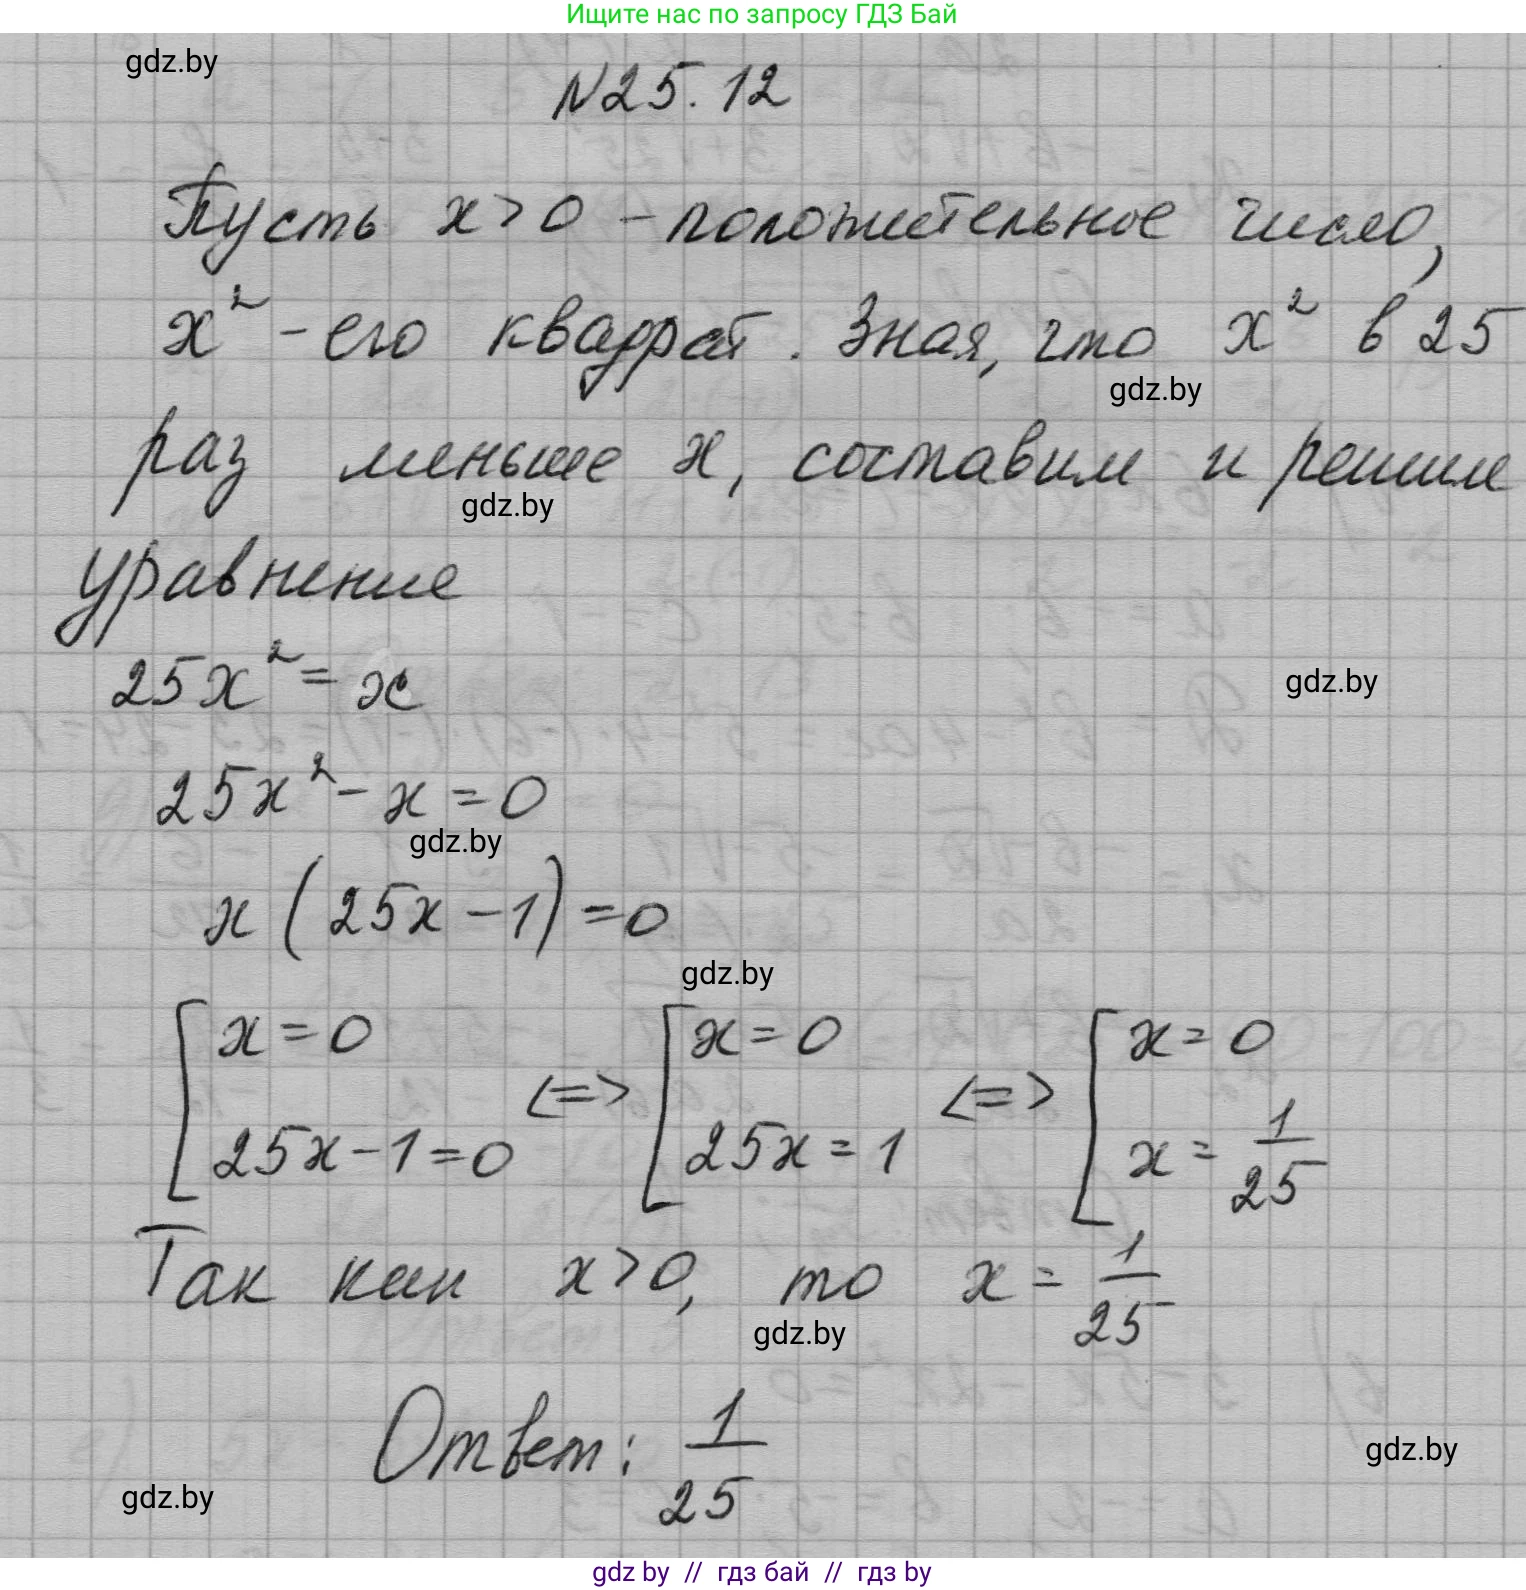 Ищите нас по запросу ГДЗ Бай
gdz.by
N25.12
Пусть x>0 - положительное число,
x² - его квадрат. Зная, что x² в 25
gdz.by
раз меньше x, составим и решим
gdz.by
уравнение
25x² = x
gdz.by
25x² - x = 0
gdz.by
x (25x - 1) = 0
gdz.by
[x = 0 <=> [x = 0 <=> [x = 0
25x - 1 = 0 25x = 1 x = 1/25
Так как x>0, то x = 1/25
gdz.by
Ответ: 1/25
gdz.by
gdz.by
gdz by // гдз бай // гдз by